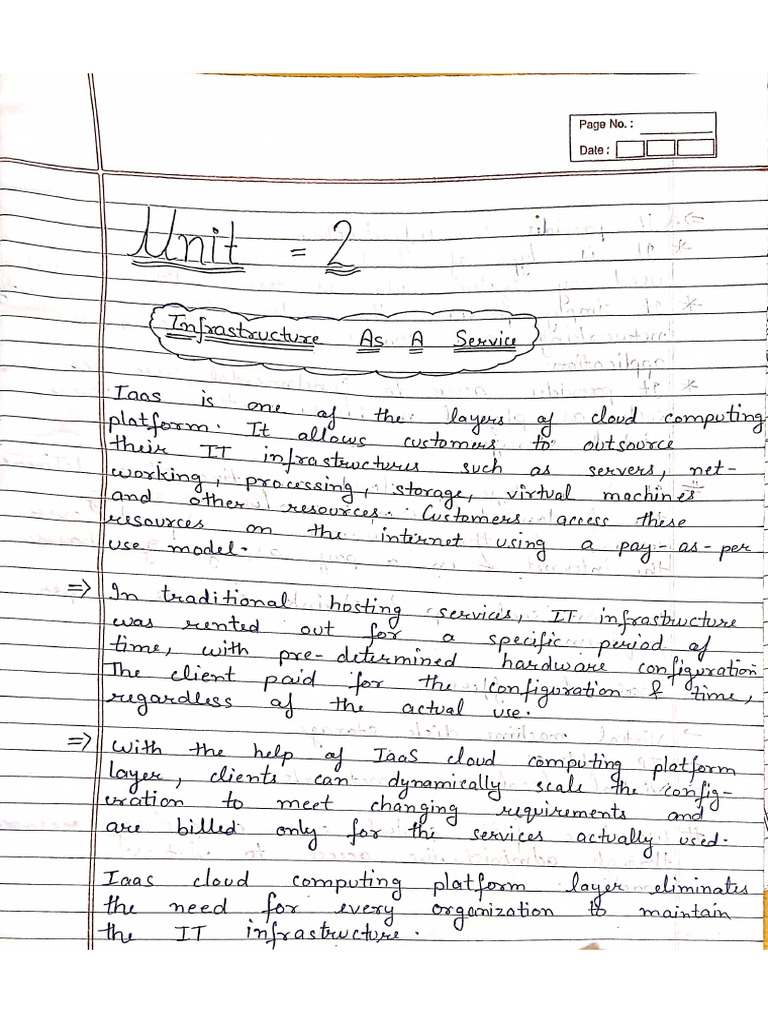 Page No. :
Date :
Unit = 2
Infrastructure As A Service
Iaas is one of the layers of cloud computing
platform. It allows customers to outsource
their IT infrastructures such as servers, net-
working, processing, storage, virtual machines
and other resources. Customers access these
resources on the internet using a pay-as-per
use model.
=> In traditional hosting services, IT infrastructure
was rented out for a specific period of
time, with pre-determined hardware configuration
The client paid for the configuration & time,
regardless of the actual use.
=> With the help of IaaS cloud computing platform
layer, clients can dynamically scale the config-
uration to meet changing requirements and
are billed only for the services actually used.
Iaas cloud computing platform layer eliminates
the need for every organization to maintain
the IT infrastructure.